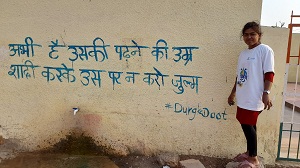 अभी है उसकी पढ़ने की उम्र
शादी करके उस पर न करो जुल्म
#DurgaDoot